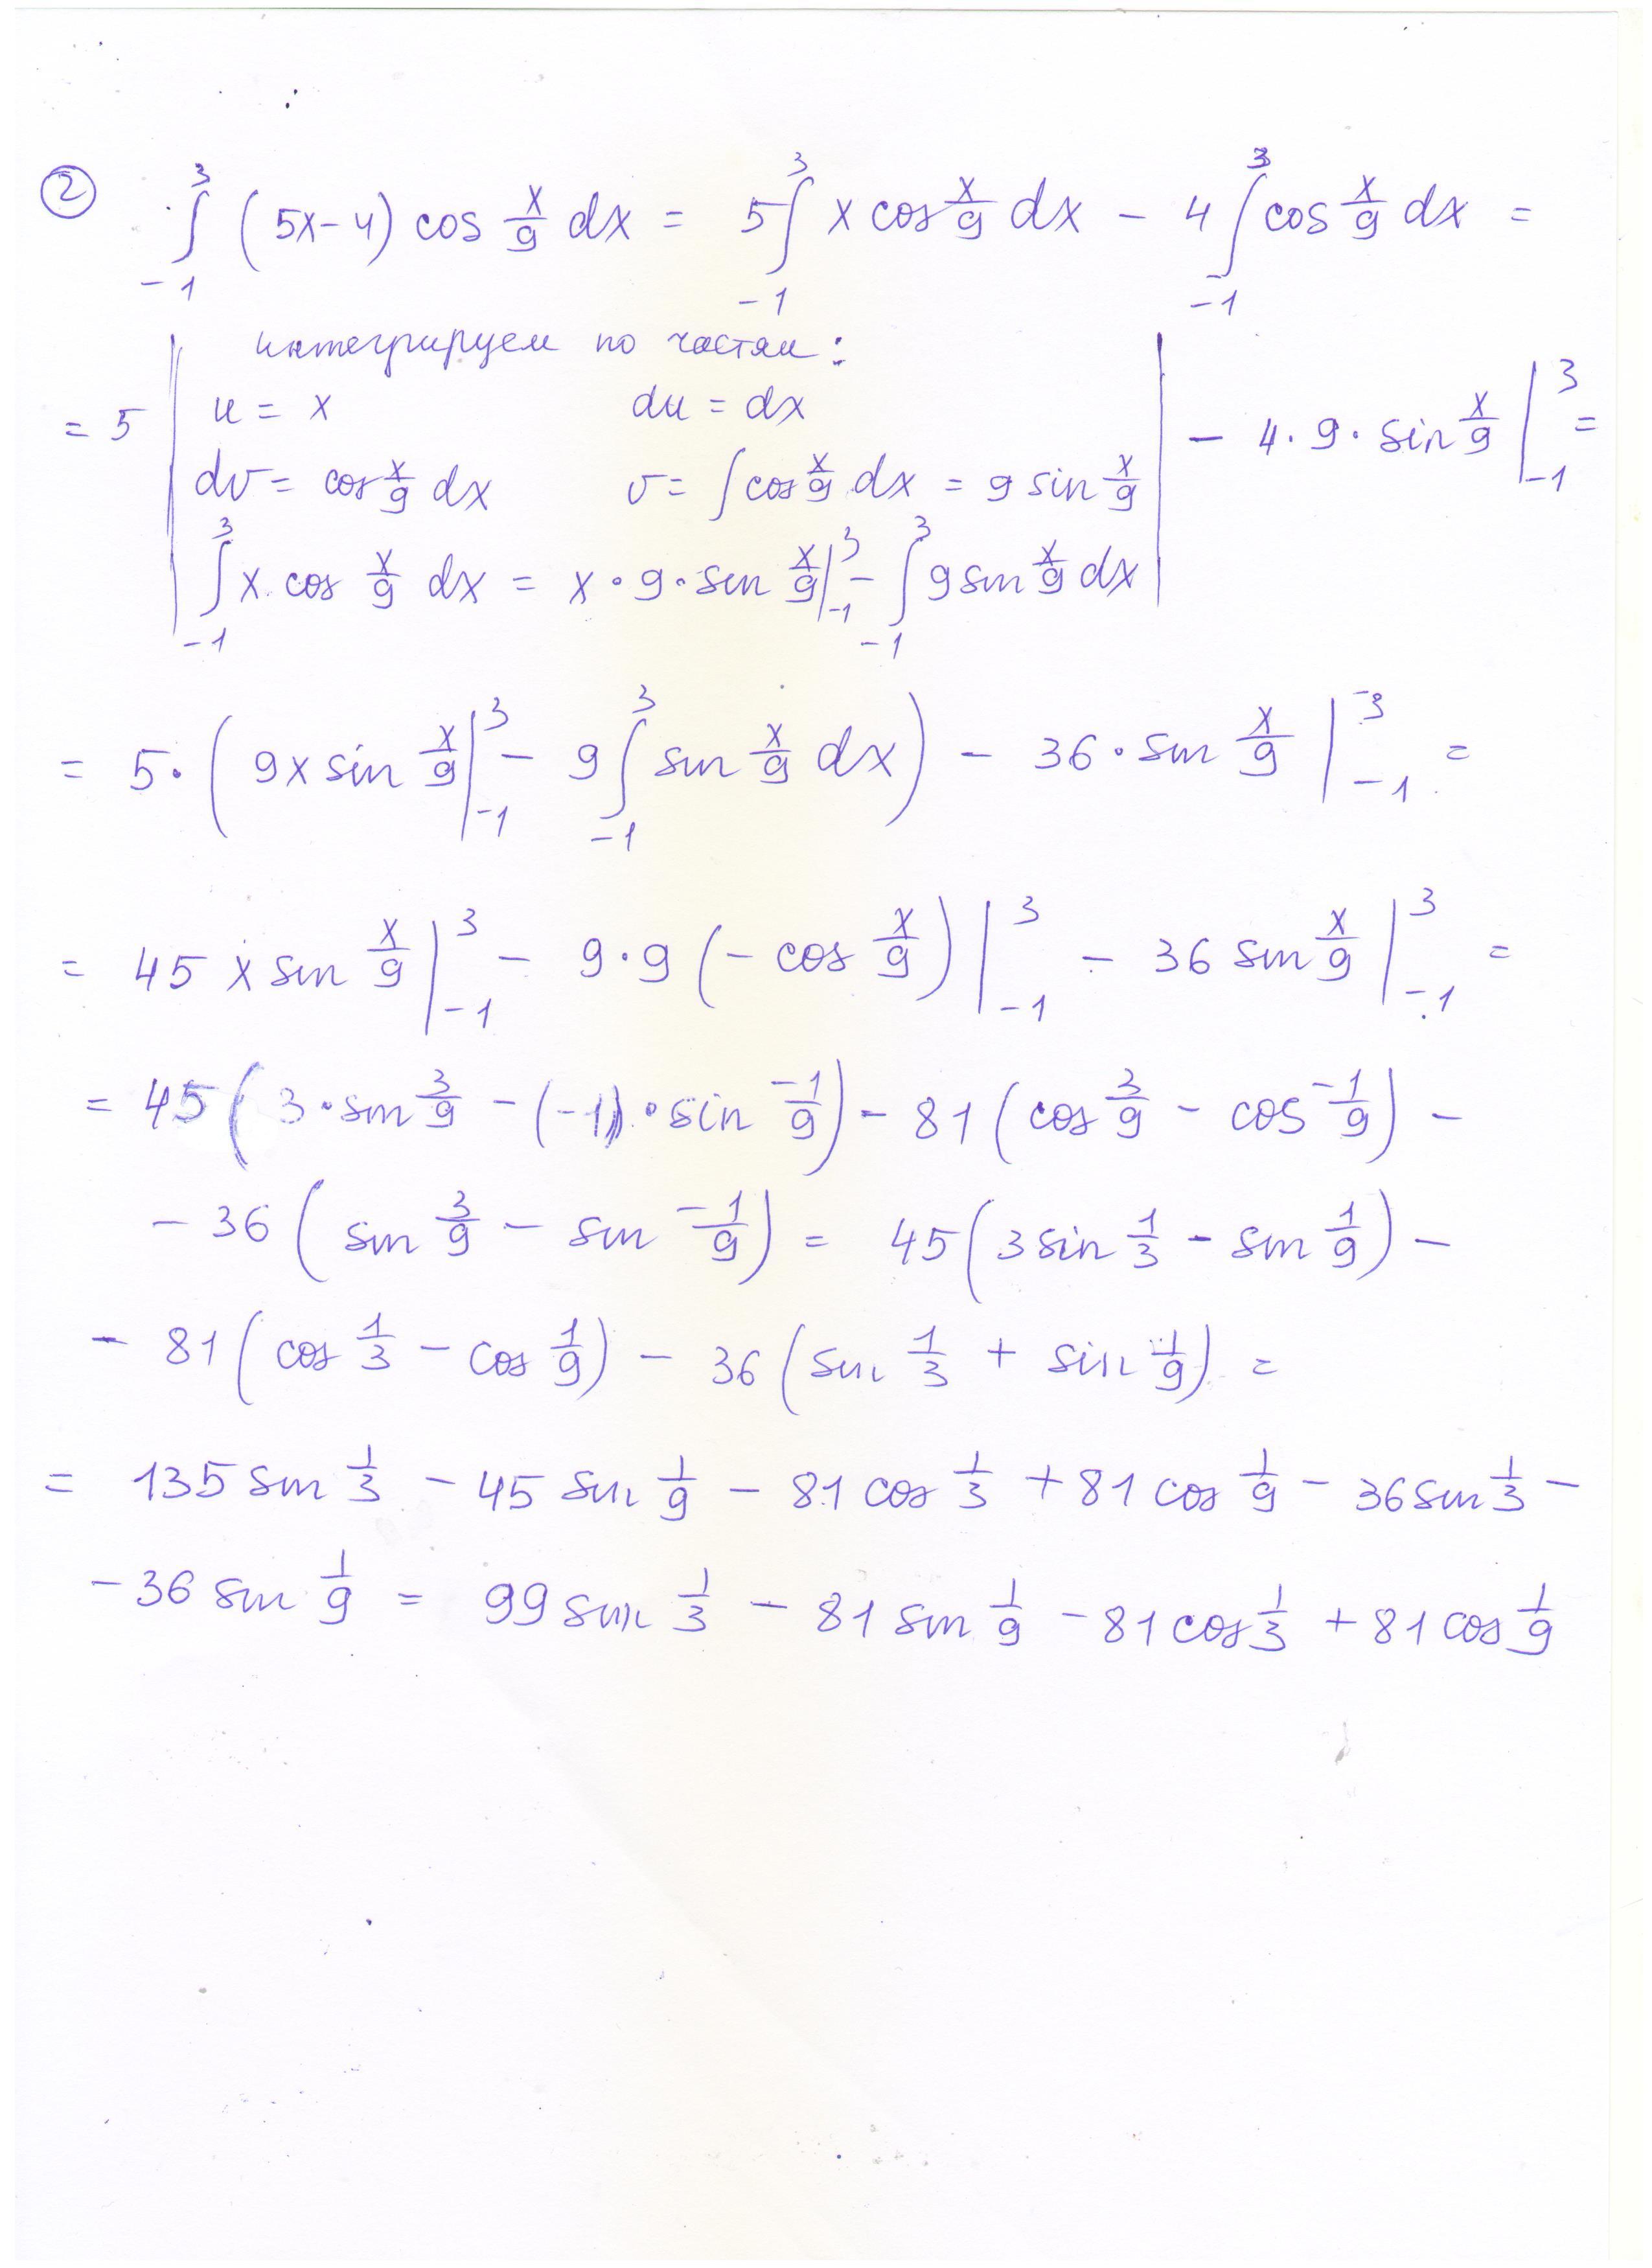 ② ∫_{-1}^{3} (5x-4) cos x/9 dx = 5∫_{-1}^{3} x cos x/9 dx - 4∫_{-1}^{3} cos x/9 dx =
интегрируем по частям:
= 5 | u = x du = dx | - 4·9·sin x/9 |_{-1}^{3} =
dv = cos x/9 dx v = ∫cos x/9 dx = 9 sin x/9
∫_{-1}^{3} x·cos x/9 dx = x·9·sin x/9 |_{-1}^{3} - ∫_{-1}^{3} 9 sin x/9 dx
= 5·(9x sin x/9 |_{-1}^{3} - 9∫_{-1}^{3} sin x/9 dx) - 36·sin x/9 |_{-1}^{3} =
= 45 x sin x/9 |_{-1}^{3} - 9·9(-cos x/9) |_{-1}^{3} - 36 sin x/9 |_{-1}^{3} =
= 45(3·sin 3/9 - (-1)·sin -1/9) - 81(cos 3/9 - cos -1/9) -
- 36(sin 3/9 - sin -1/9) = 45(3 sin 1/3 - sin 1/9) -
- 81(cos 1/3 - cos 1/9) - 36(sin 1/3 + sin 1/9) =
= 135 sin 1/3 - 45 sin 1/9 - 81 cos 1/3 + 81 cos 1/9 - 36 sin 1/3 -
- 36 sin 1/9 = 99 sin 1/3 - 81 sin 1/9 - 81 cos 1/3 + 81 cos 1/9